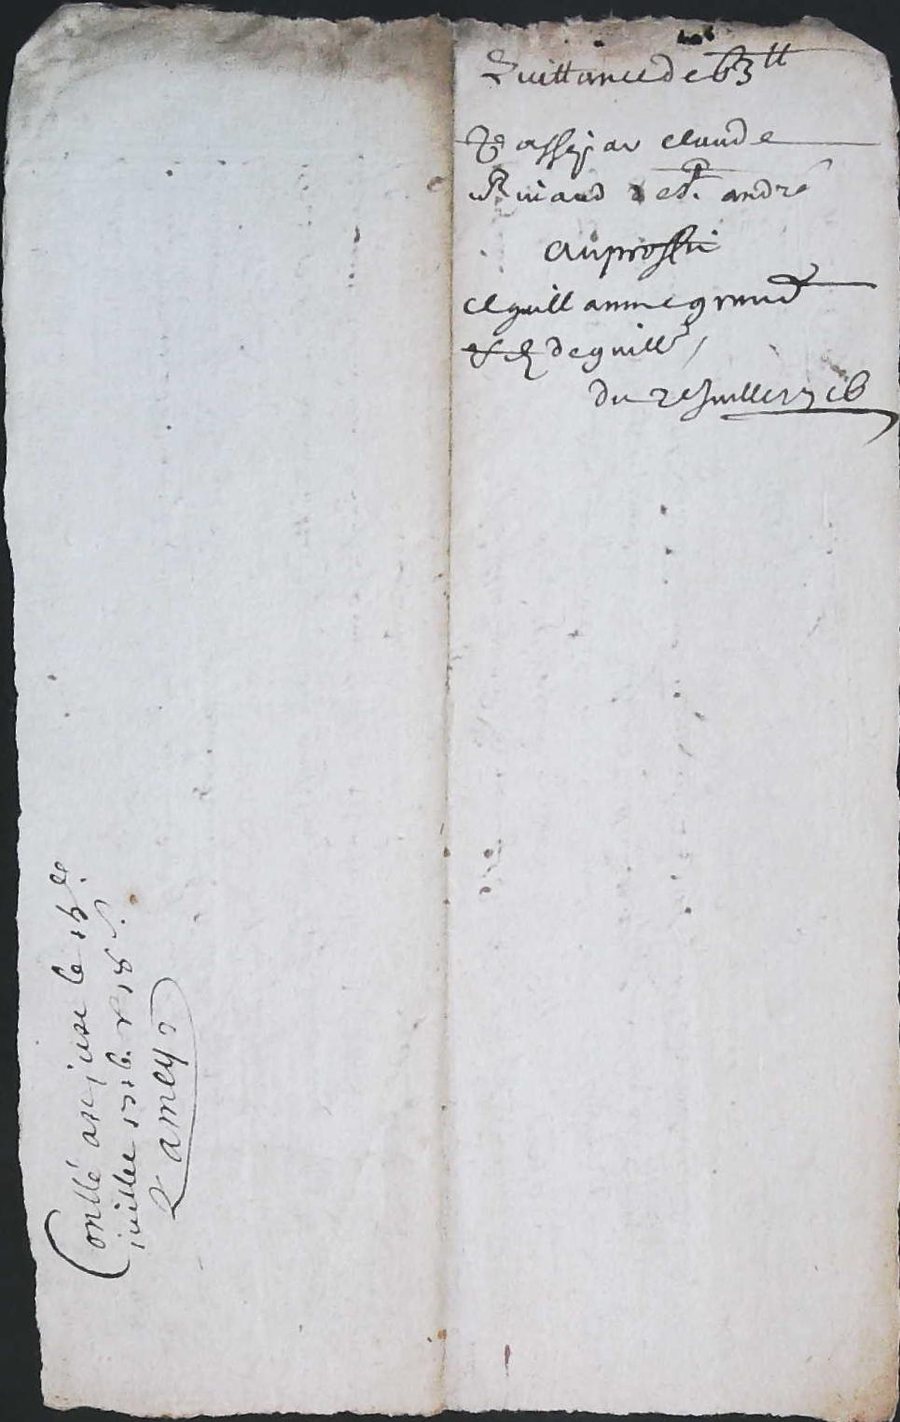 Quittance de 63  tt
Passé par Claude
Rivaud de St. andré
au proffit
de guillaume grand
fils de guill.e
du 2e Juillet 1716
Conllé a le 15e
juillet 1716. R 18 s.
Lamey